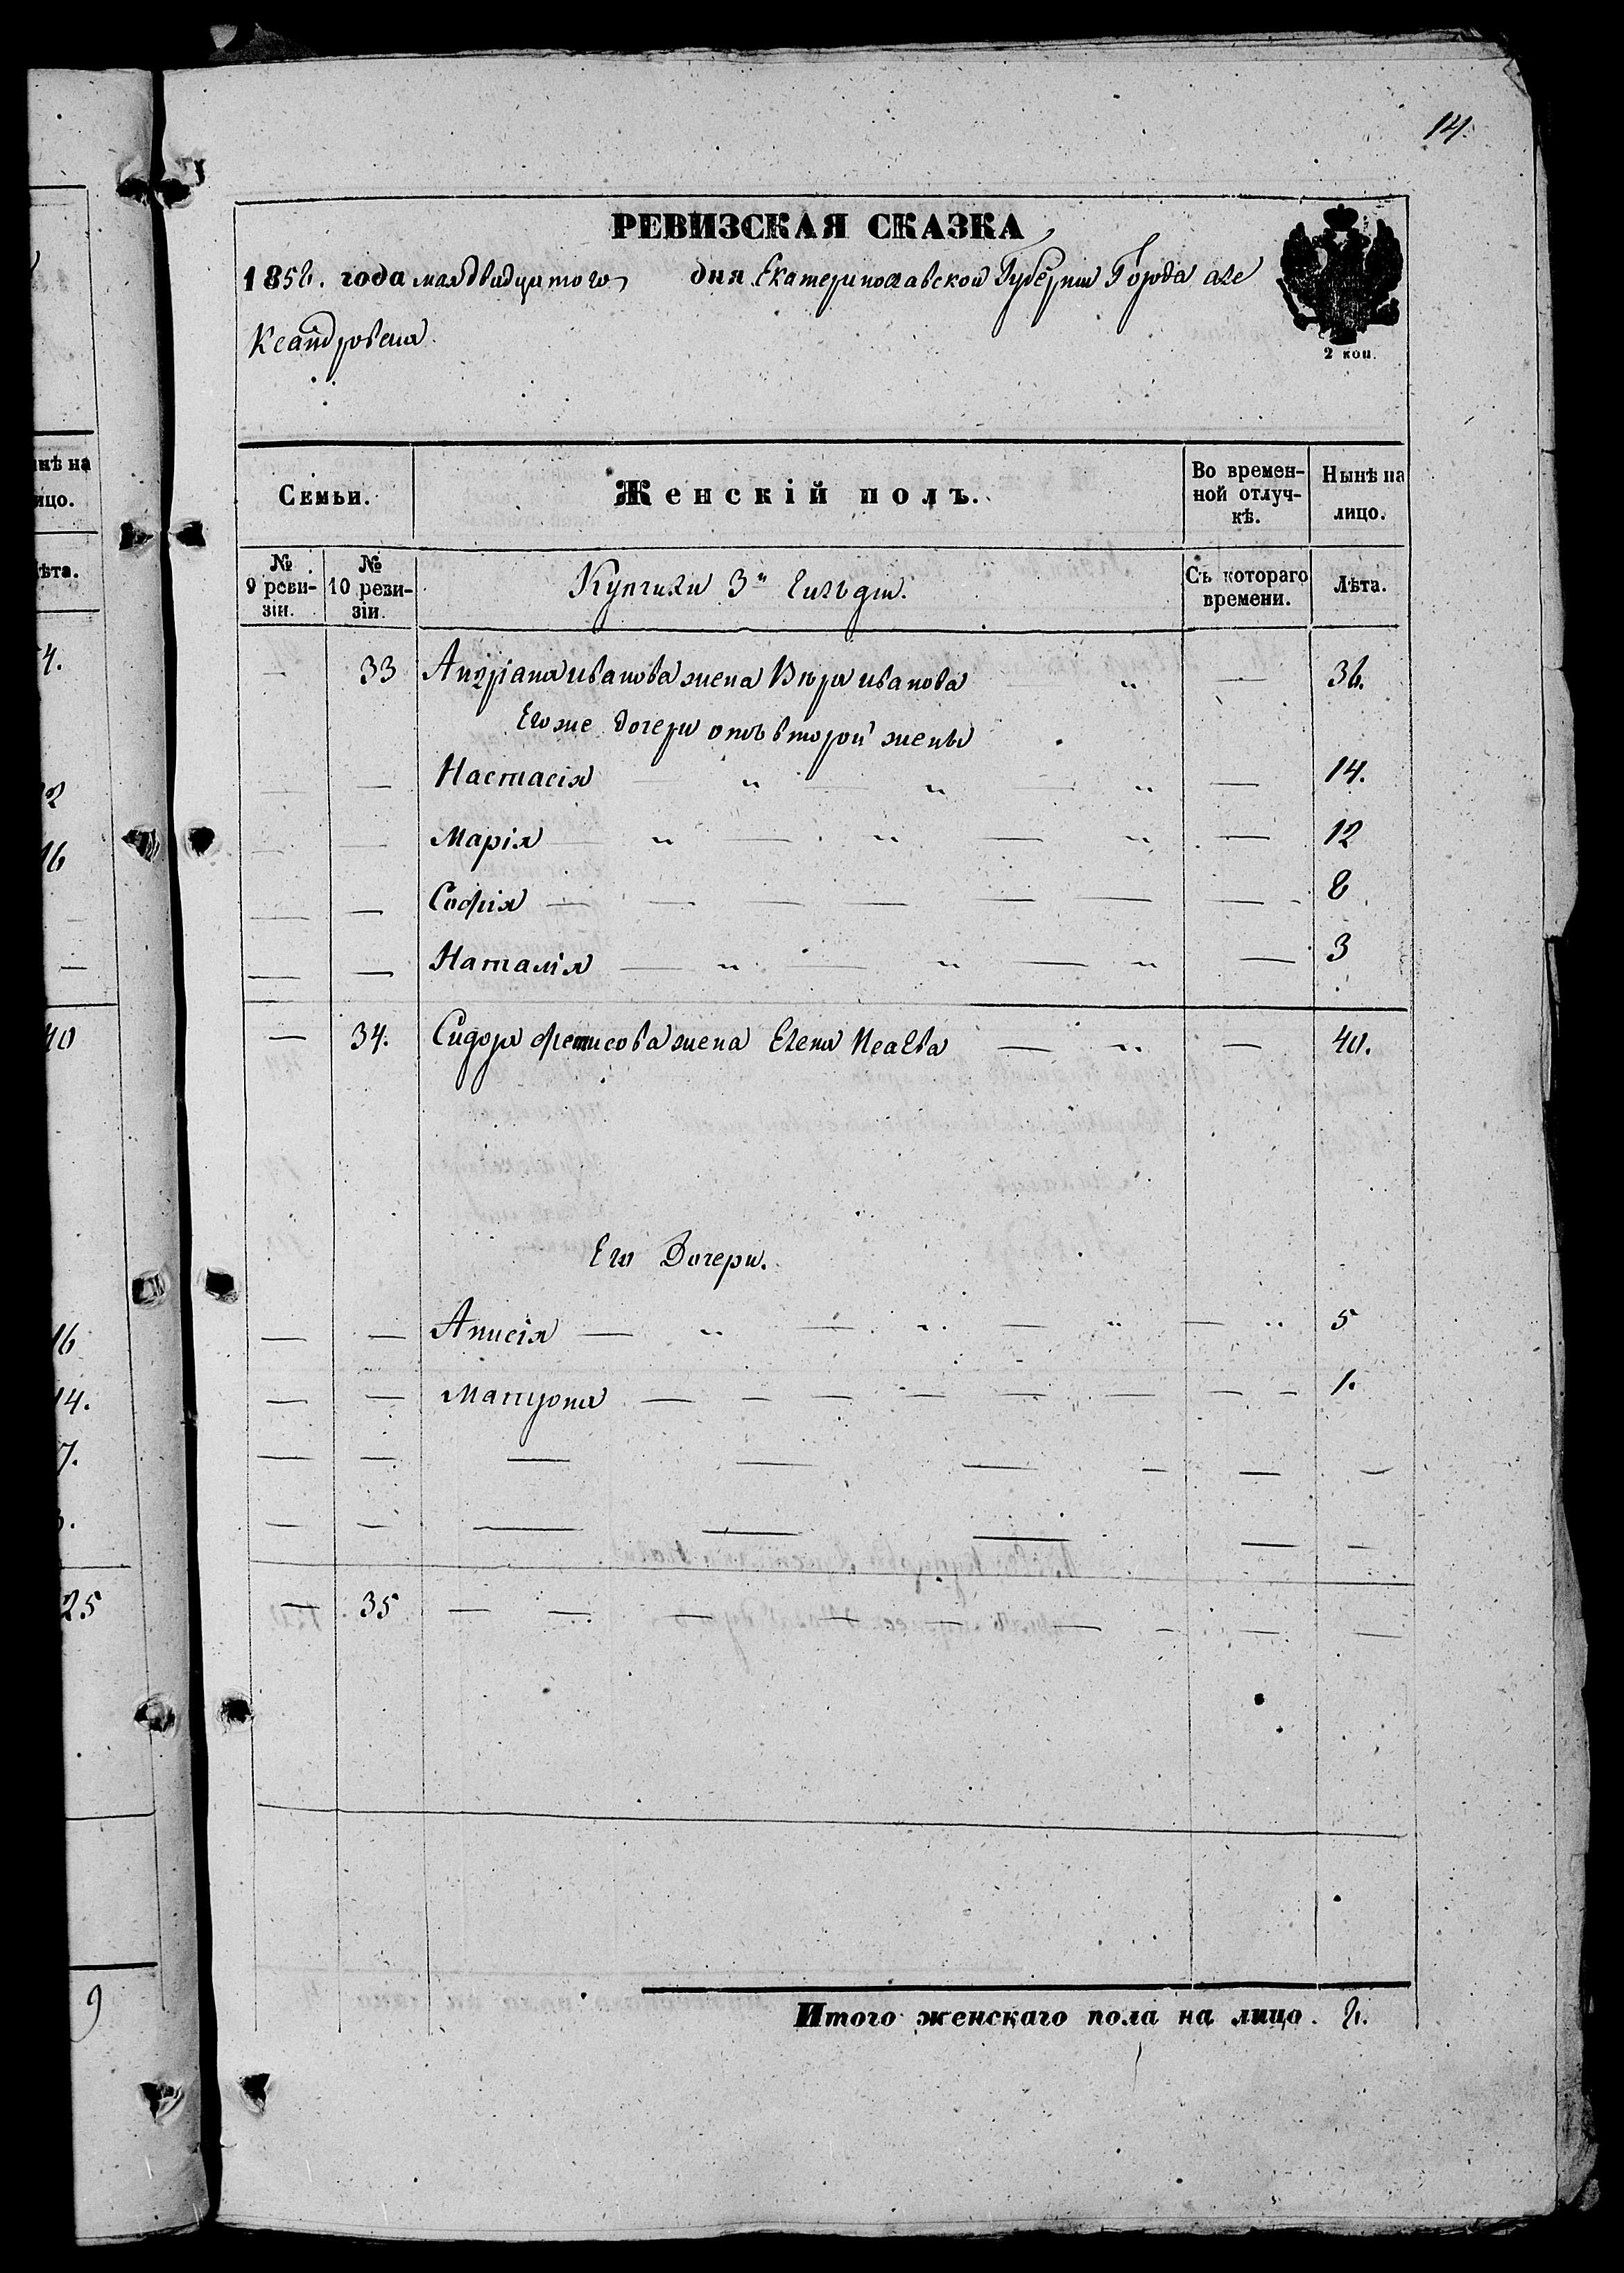 14.
РЕВИЗСКАЯ СКАЗКА
1858. года мая двадцатого дня Екатеринославской Губернии Города Але
ксандровска
2 коп.
Семьи. Женскій полъ. Во времен- Нынѣ на
ной отлуч- лицо.
кѣ.
№ 9 реви- зіи. № 10 реви- зіи. Купчихи 3й Гильдіи. Съ котораго времени. Лѣта.
— 33 Андріана Иванова жена Вѣра Иванова — „ — 36.
Его же дочери отъ второй жены
— — Настасія — „ — „ — „ — 14.
— — Марія — „ — „ — „ — 12
— — Софія — — — — — — — 8
— — Наталія — „ — „ — „ — 3
— 34. Сидора Фетисова жена Елена — „ — 40.
Его Дочери.
— — Анисія — „ — „ — „ — „ 5
— — Матрона — — — — — — — — 1.
— — — — — — — —
— — — — — — —
— 35 — — — — — — — — —
Итого женскаго пола на лицо. 8.
нѣ на
ицо.
ѣта.
4.
2
16
—
—
40
16
14.
7.
3.
25
9